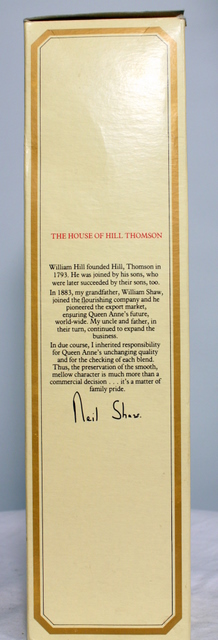 THE HOUSE OF HILL THOMSON
William Hill founded Hill, Thomson in
1793. He was joined by his sons, who
were later succeeded by their sons, too.
In 1883, my grandfather, William Shaw,
joined the flourishing company and he
pioneered the export market,
ensuring Queen Anne's future,
world-wide. My uncle and father, in
their turn, continued to expand the
business.
In due course, I inherited responsibility
for Queen Anne's unchanging quality
and for the checking of each blend.
Thus, the preservation of the smooth,
mellow character is much more than a
commercial decision . . . it's a matter of
family pride.
Neil Shaw.